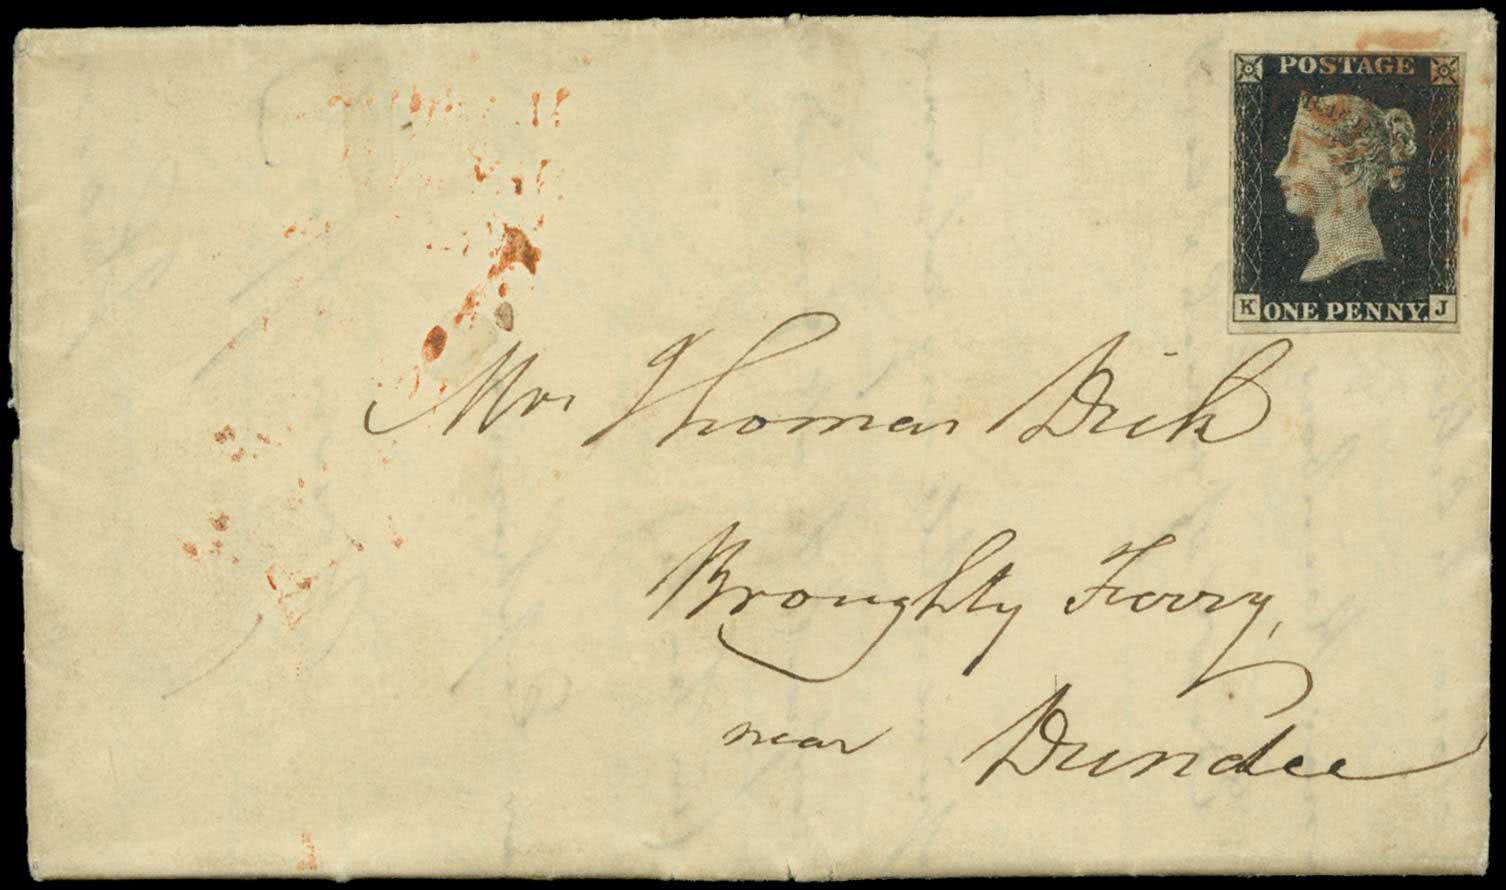 POSTAGE
K ONE PENNY. J
Mr Thomas Dick
Broughty Ferry,
near Dundee